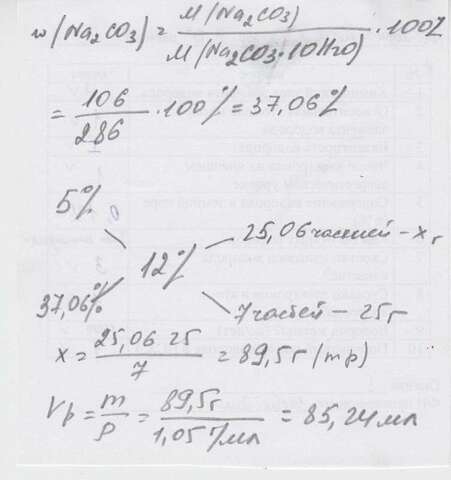 w(Na₂CO₃) = M(Na₂CO₃) / M(Na₂CO₃·10H₂O) · 100%
= 106 / 286 · 100% = 37,06%
5%
25,06 частей – x г
12%
37,06%
7 частей – 25 г
x = 25,06 25 / 7 = 89,5 г (mp)
Vp = m / ρ = 89,5г / 1,05г/мл = 85,24 мл